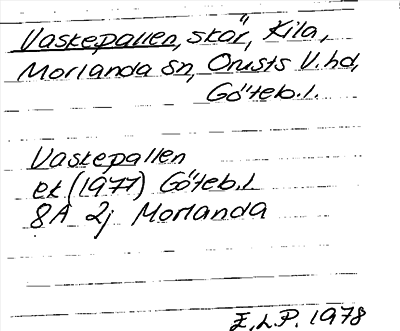 Vaskepallen, skär, Kila,
Morlanda sn, Orusts V. hd,
Göteb. l.
Vaskepallen
ek (1977) Göteb. l
8A 2j Morlanda
E.L.P. 1978